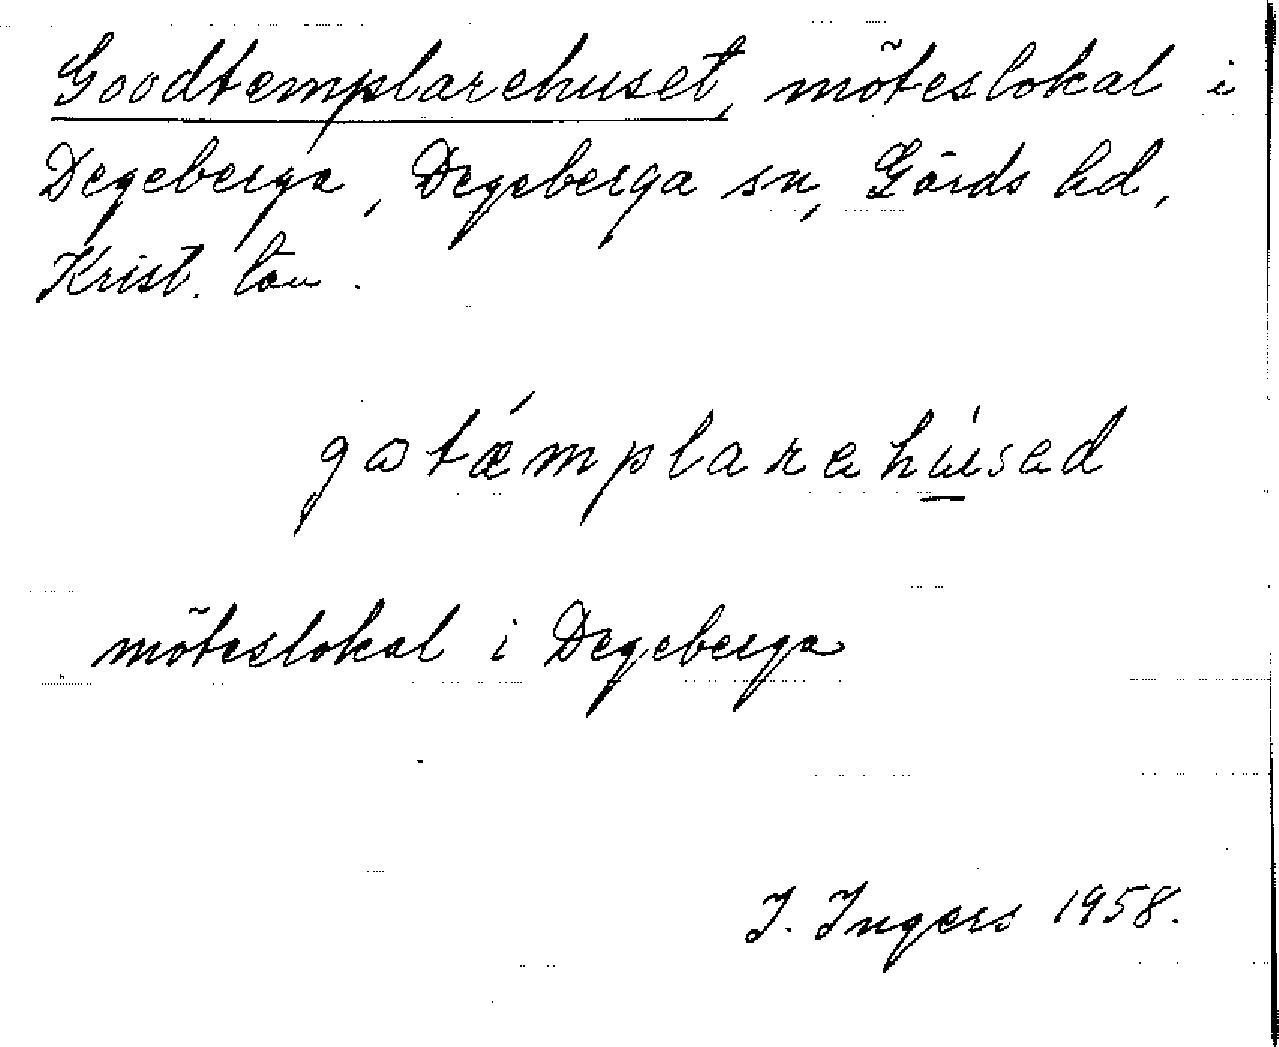 Goodtemplarehuset, möteslokal i
Degeberga, Degeberga sn, Gärds hd,
Krist. län.
gatǽmplarehúsed
möteslokal i Degeberga
I. Ingers 1958.